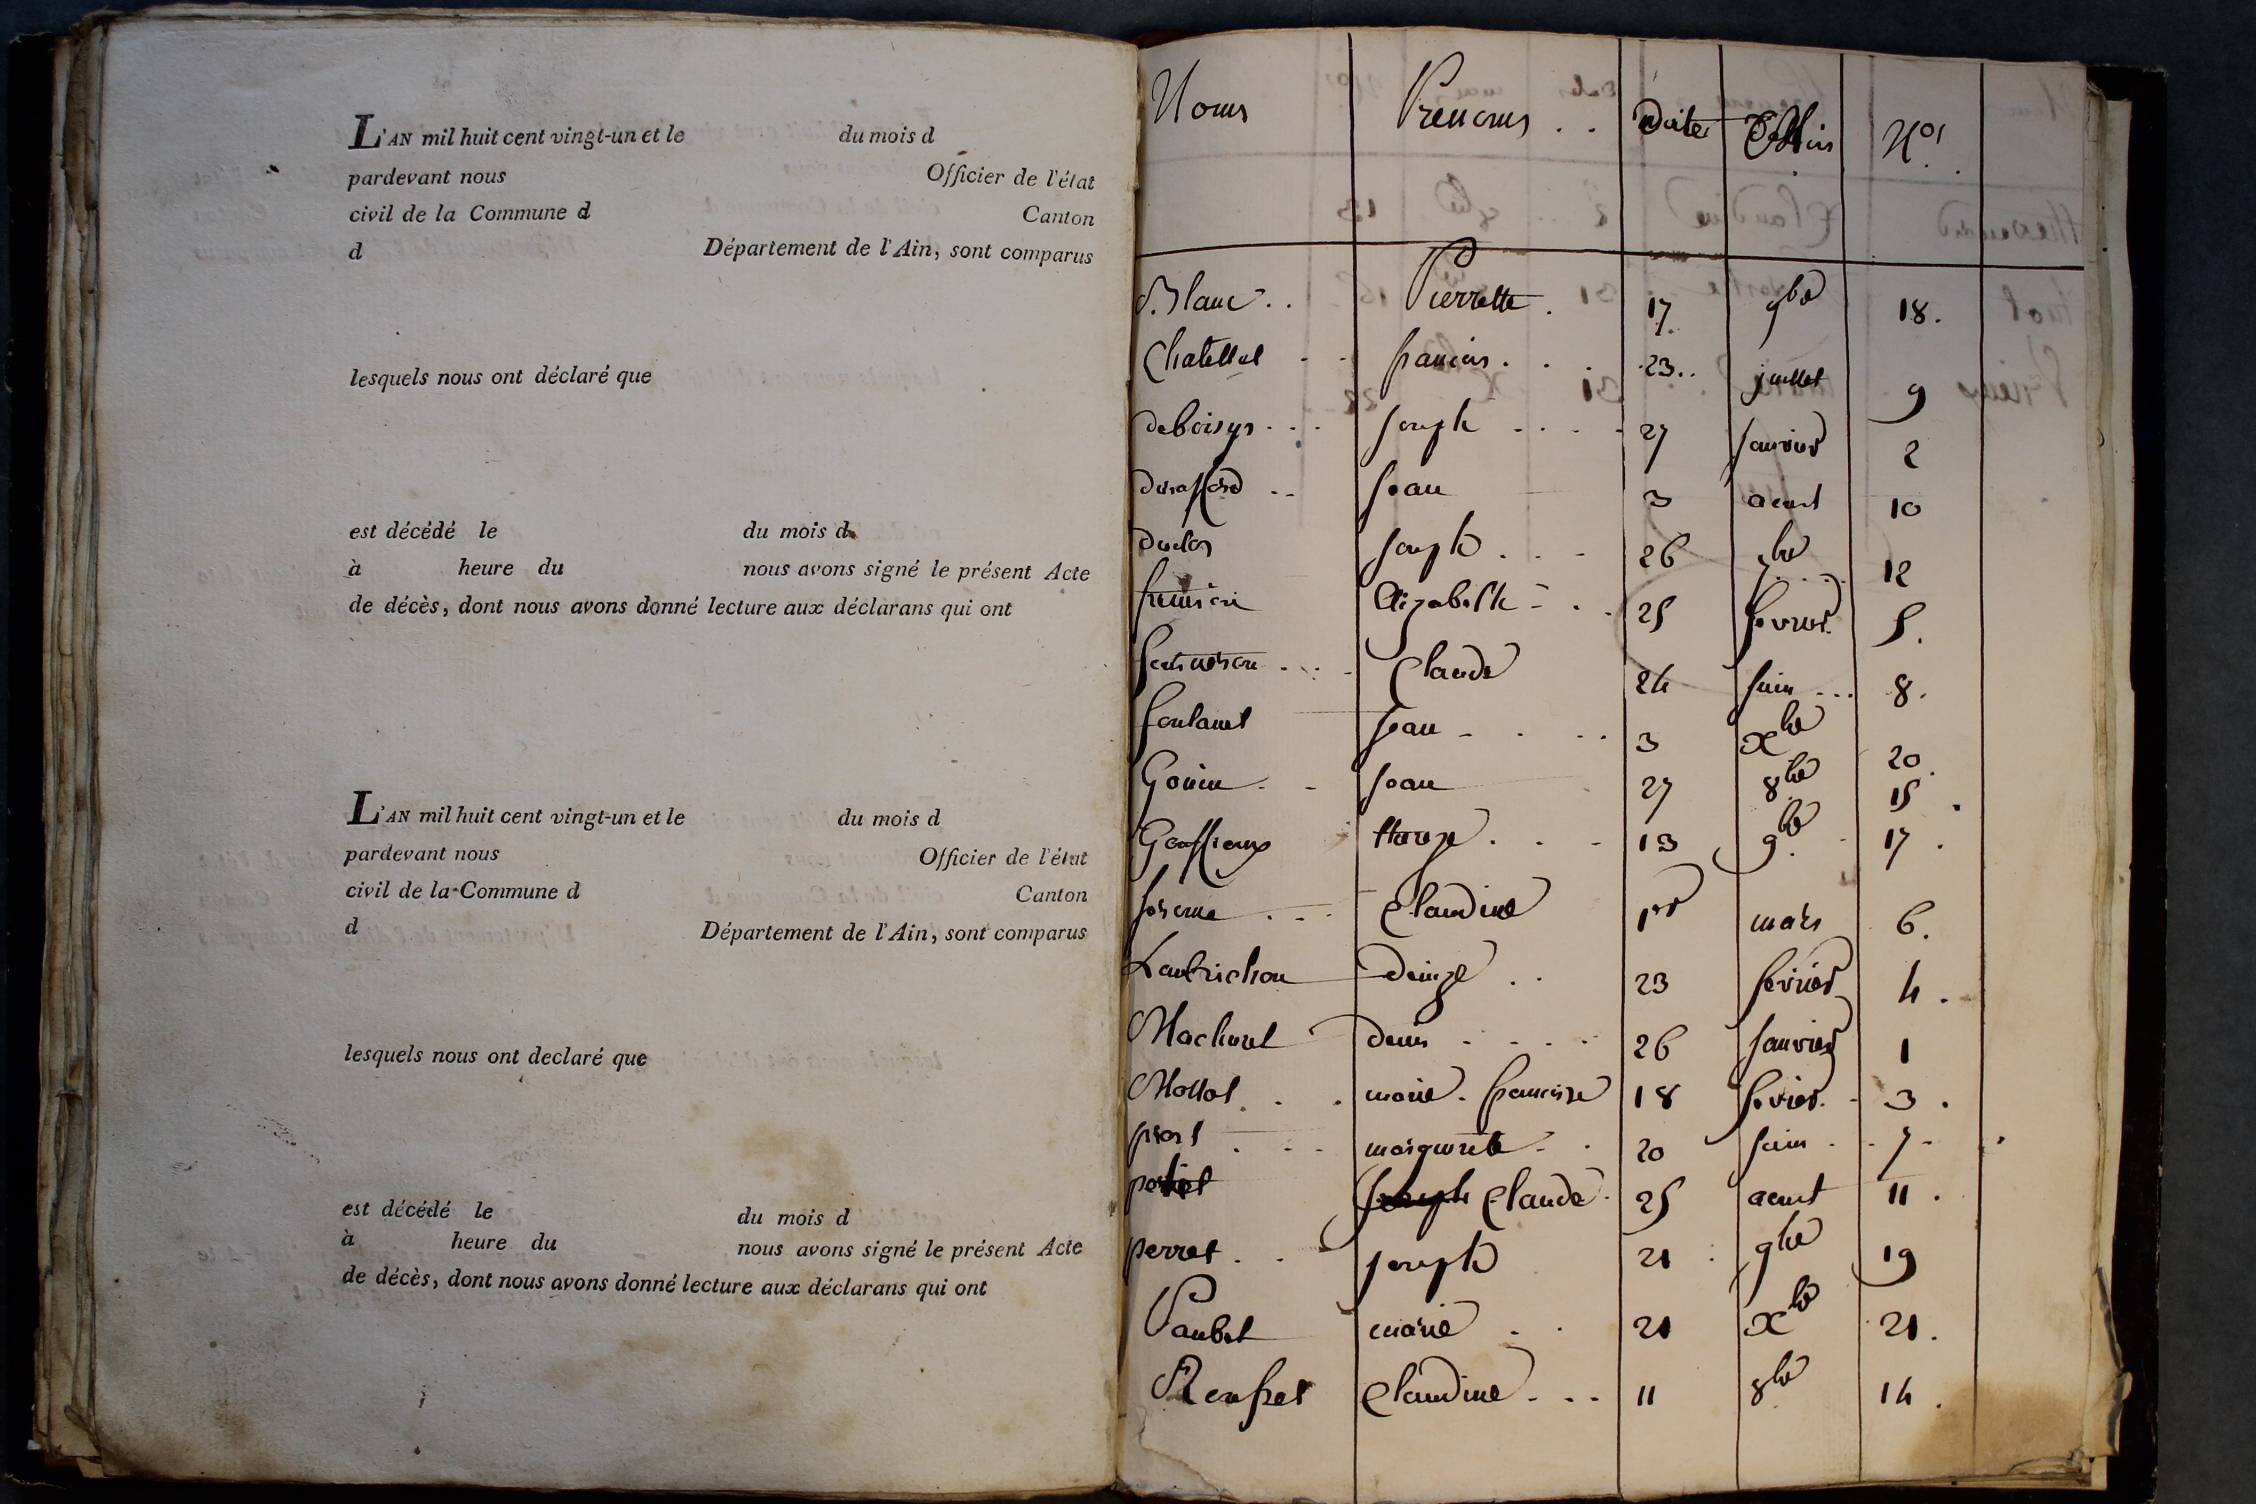 L'AN mil huit cent vingt-un et le du mois d
pardevant nous Officier de l'état
civil de la Commune d Canton
d Département de l'Ain, sont comparus
lesquels nous ont déclaré que
est décédé le du mois d
à heure du nous avons signé le présent Acte
de décès, dont nous avons donné lecture aux déclarans qui ont
L'AN mil huit cent vingt-un et le du mois d
pardevant nous Officier de l'état
civil de la Commune d Canton
d Département de l'Ain, sont comparus
lesquels nous ont declaré que
est décédé le du mois d
à heure du nous avons signé le présent Acte
de décès, dont nous avons donné lecture aux déclarans qui ont
Noms Prenoms . . Date N.os
Blanc . . Pierrette . 17 9bre 18.
Chatellet francois . . . 23 . . juillet 9
deboisys . . . joseph . . . . 27 janvier 2
jean 3 aout 10
duclos joseph . . . 26 12
Elizabeth 25 fevrier 5.
Claude 24 juin . . . 8.
fontanet jean 3 xbre 20.
Gouin jean 27 8bre 15.
13 9bre 17.
jerome Claudine 1er mars 6.
Laubrichon 23 fevrier 4.
Machurel denis . . . . 26 janvier 1
Mollat . . . marie francoise 18 fevrier 3.
marguerite 20 juin 7
Claude 25 aout 11.
perret . . joseph 21 9bre 19
Paubel marie . . 21 xbre 21.
Renfret Claudine . . . 11 8bre 14.